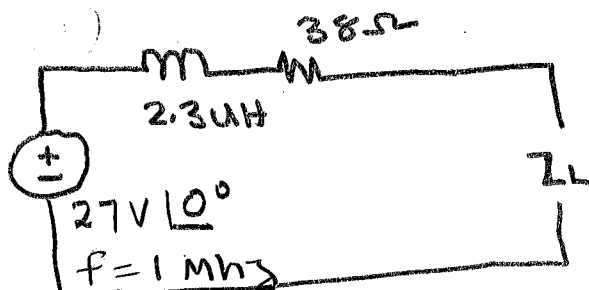 38Ω
2.3uH
ZL
+
27V∠0°
f = 1 Mhz